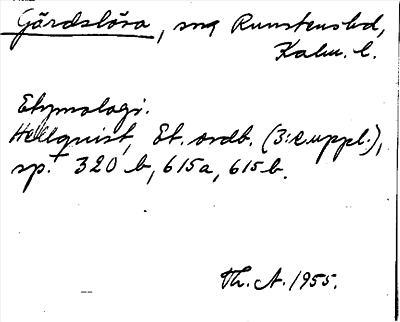 Gärdslösa, sng Runstens hd,
Kalm. l.
Etymologi.
Hellquist, Et. ordb. (3:e uppl.),
sp. 320 b, 615a, 615b.
Th. A. 1955.